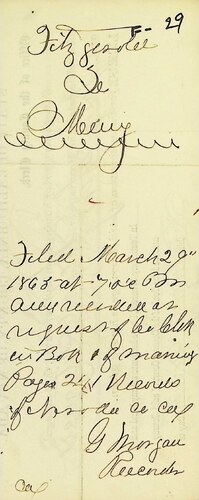 F - 29
Fitzgerald
To
Filed March 29"
1865 at 7 o'c P.M.
and recorded at
request of Co Clk
in Book of marriag
Pages 241 Records
of Nevada Co Cal
G Morgan
Recorder